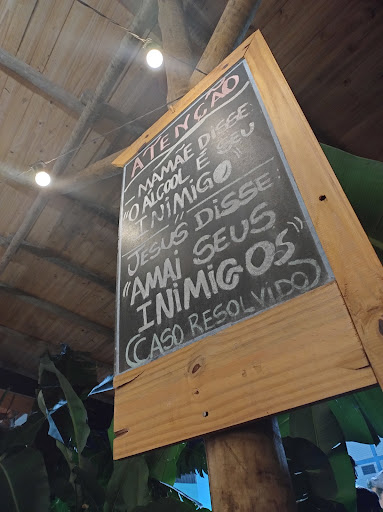 ATENÇÃO
MAMÃE DISSE:
"O ÁLCOOL É SEU
INIMIGO"
JESUS DISSE:
"AMAI SEUS
INIMIGOS"
(CASO RESOLVIDO)